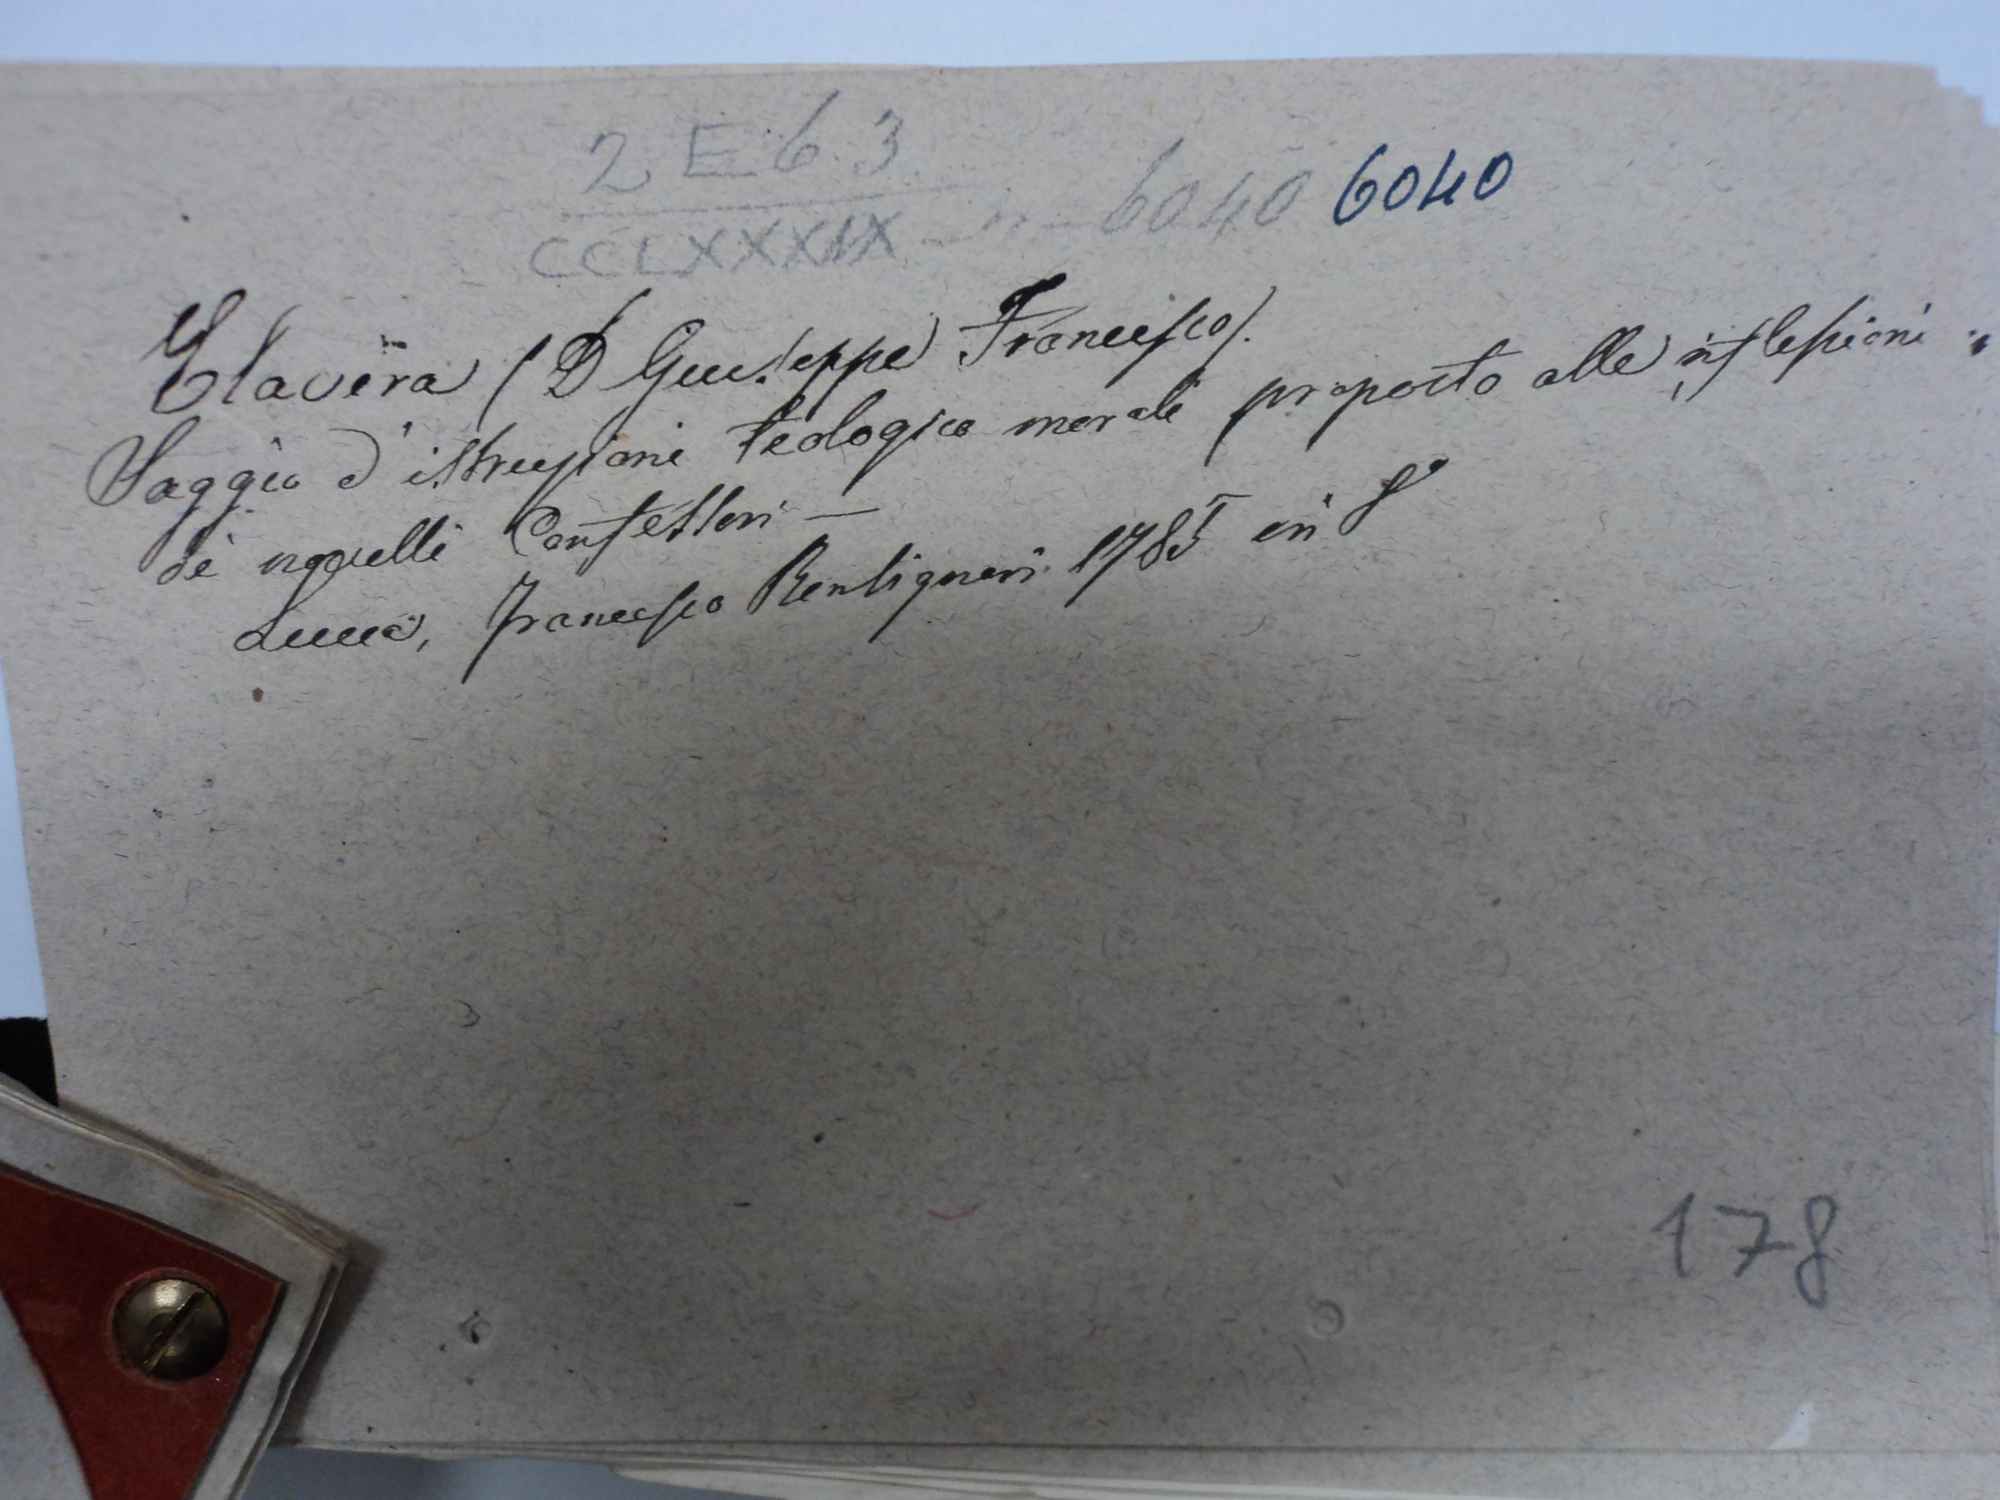 2 E 6. 3
CCLXXXIX - n - 6040 6040
Elavera (D Giuseppe Francesco).
Saggio d'istruzioni teologico morali proposto alle riflessioni
di novelli Confessori —
Lucca, Francesco Bonsignori 1785 in 8°
178